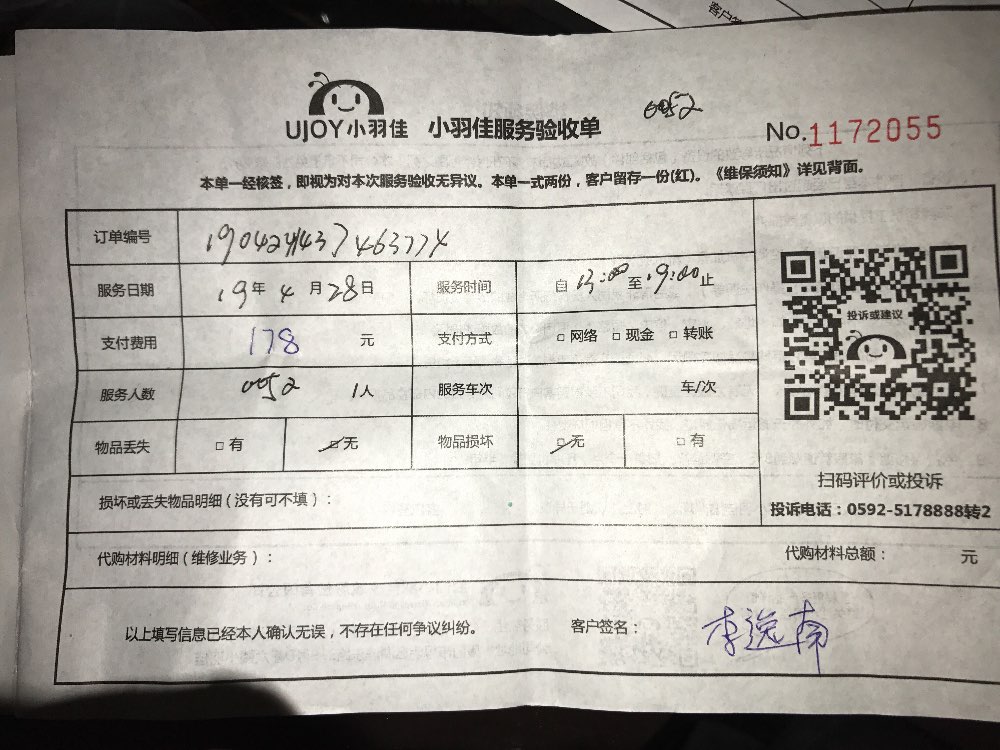 客户签
UJOY小羽佳 小羽佳服务验收单
0052
No.1172055
本单一经核签，即视为对本次服务验收无异议。本单一式两份，客户留存一份(红)。《维保须知》详见背面。
订单编号
服务日期 19年 4月28日 服务时间 自13:00至19:00止
支付费用 178 元 支付方式 □ 网络 □ 现金 □ 转账
服务人数 0052 1人 服务车次 车/次
物品丢失 □ 有 □无 物品损坏 □无 □ 有
投诉或建议
扫码评价或投诉
投诉电话：0592-5178888转2
损坏或丢失物品明细（没有可不填）：
代购材料明细（维修业务）： 代购材料总额： 元
以上填写信息已经本人确认无误，不存在任何争议纠纷。 客户签名： 李逸南